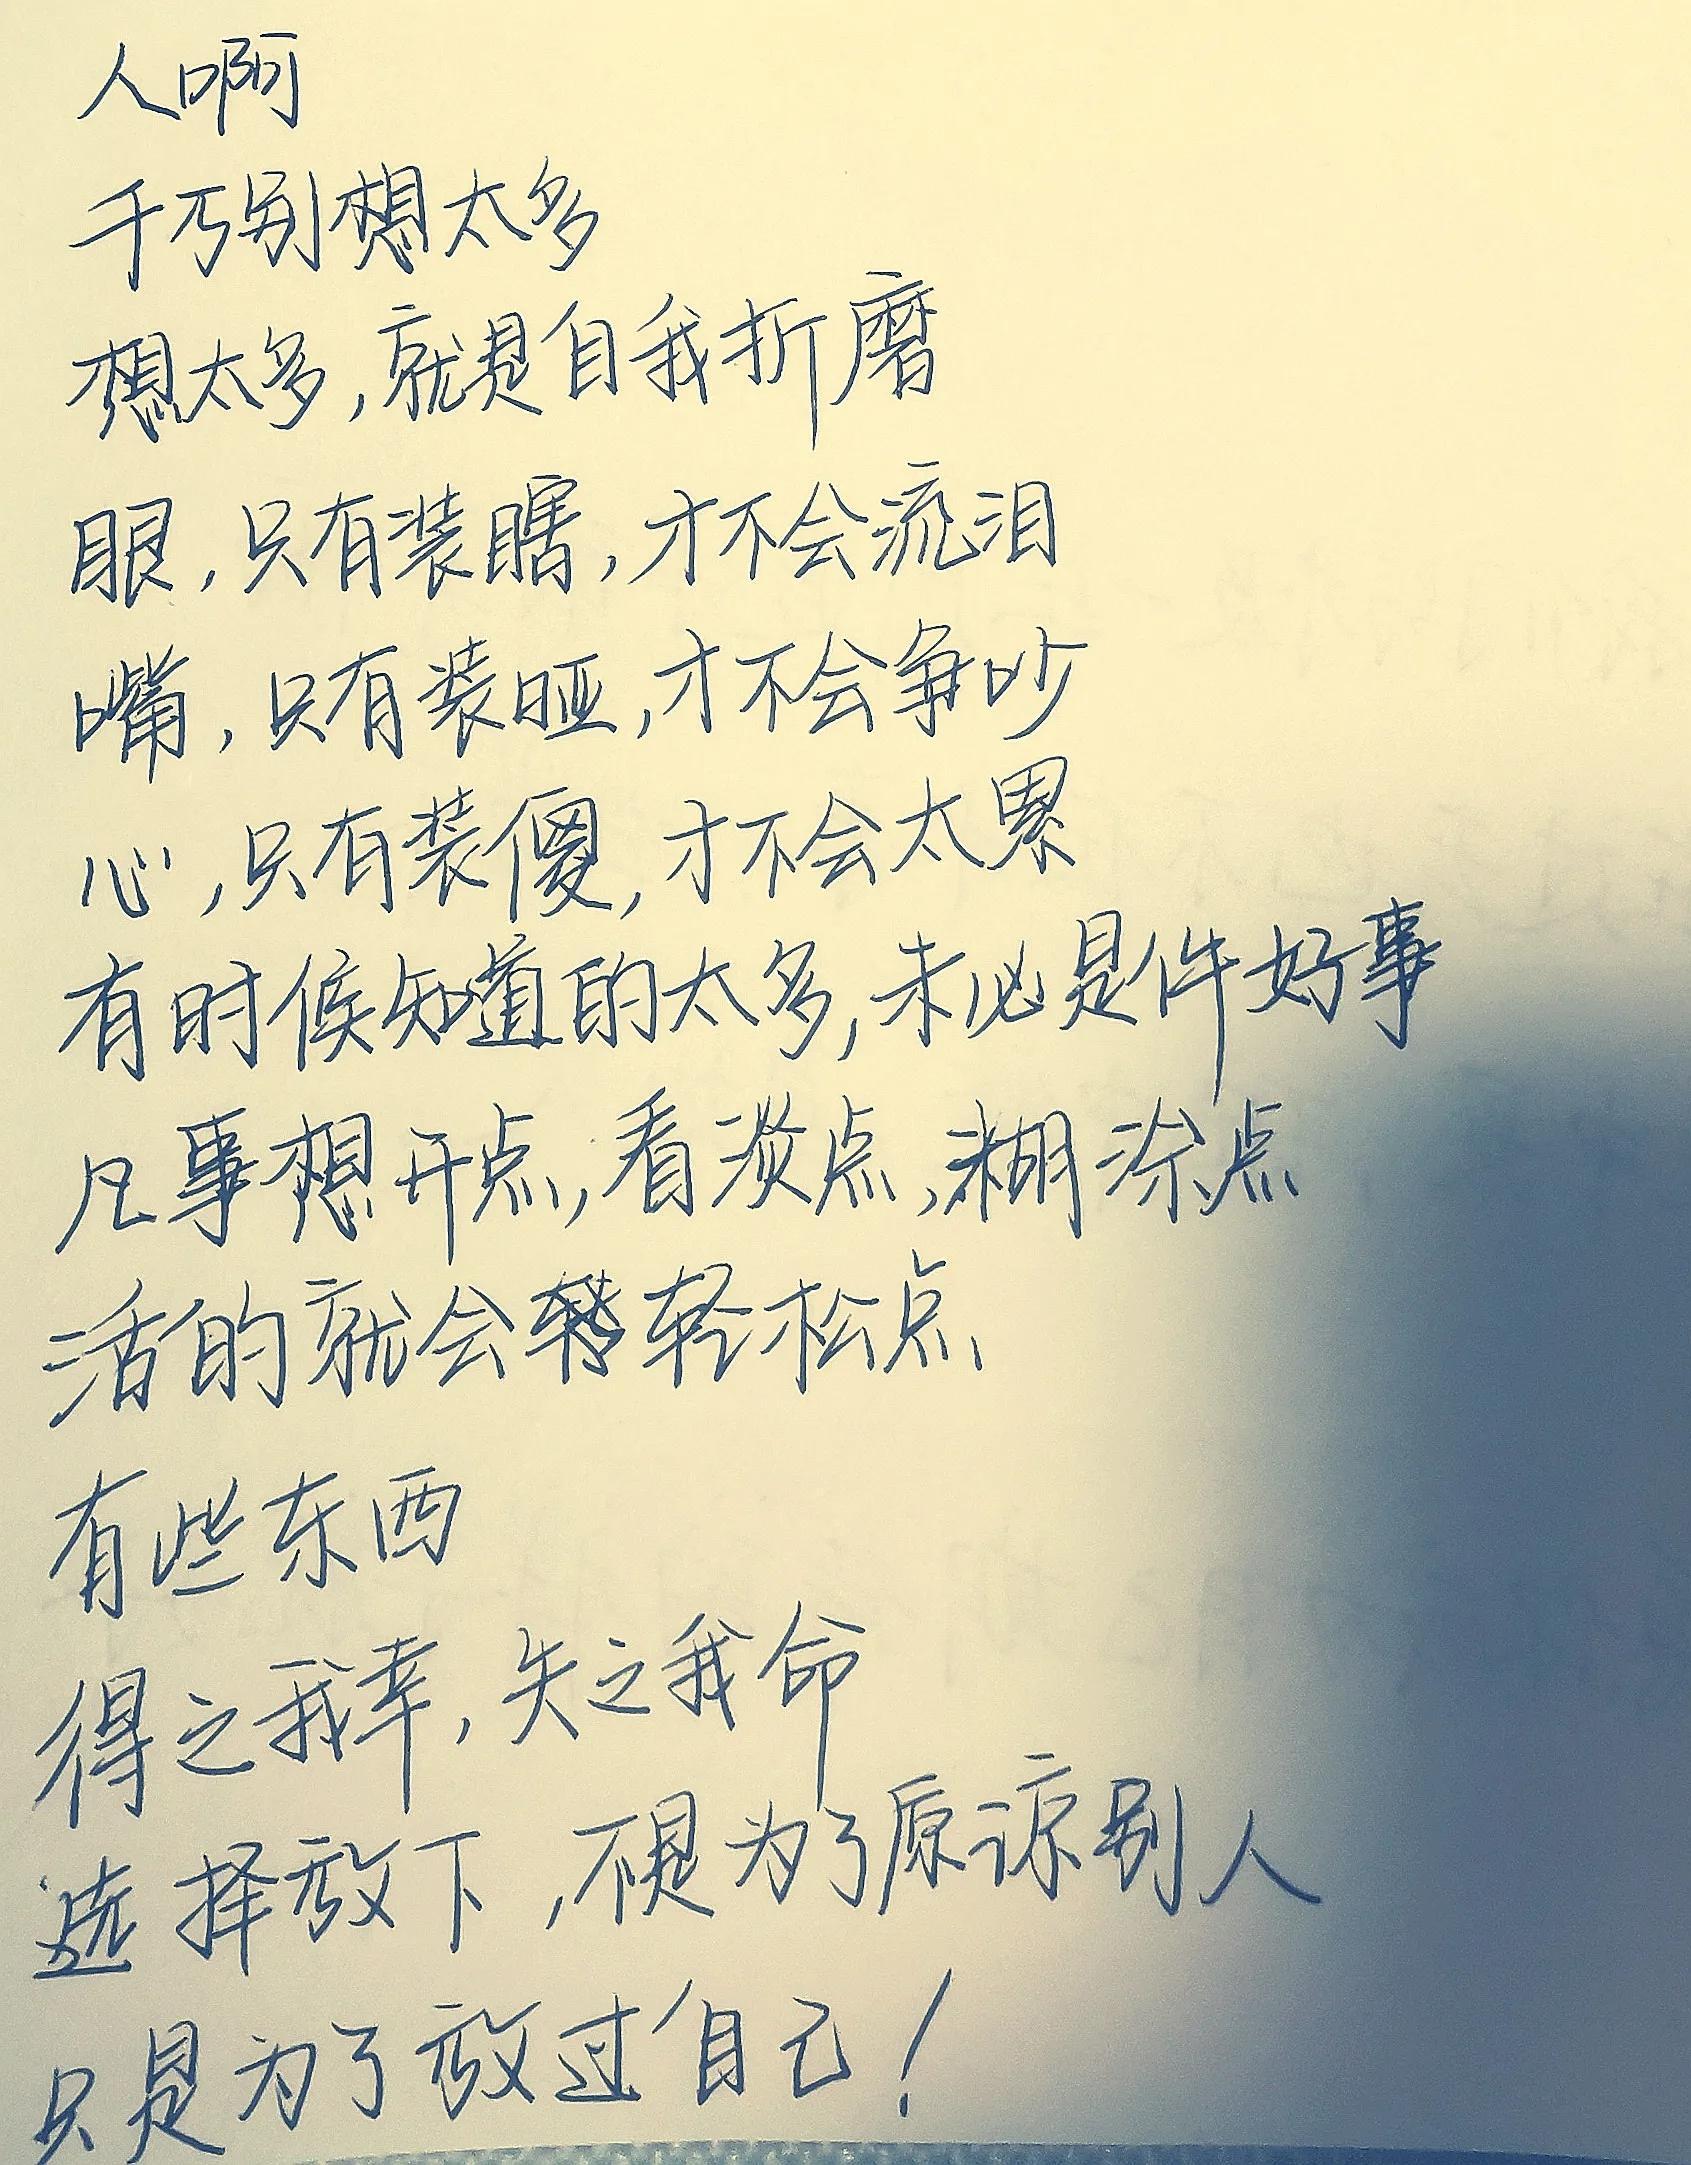 人啊
千万别想太多
想太多,就是自我折磨
眼,只有装瞎,才不会流泪
嘴,只有装哑,才不会争吵
心,只有装傻,才不会太累
有时候知道的太多,未必是件好事
凡事想开点,看淡点,糊涂点
活的就会轻松点
有些东西
得之我幸,失之我命
选择放下,不是为了原谅别人
只是为了放过自己!